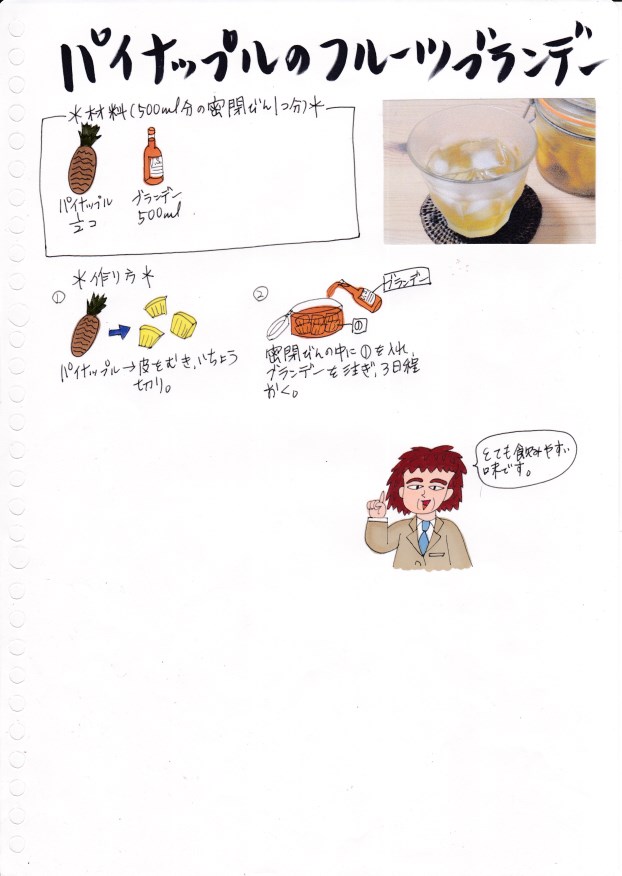 パイナップルのフルーツブランデー
＊材料(500ml分の密閉びん1つ分)＊
パイナップル
1/2コ
ブランデー
500ml
＊作り方＊
①
パイナップル→皮をむき、いちょう
切り。
②
ブランデー
①
密閉びんの中に①を入れ、
ブランデーを注ぎ、3日程
おく。
とても飲みやすい
味です。